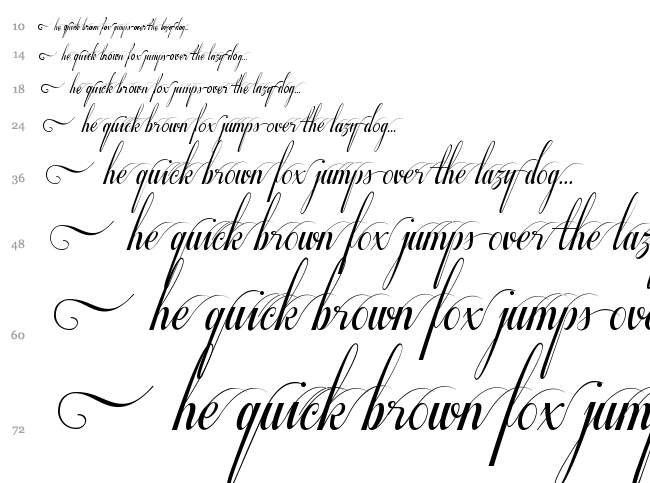 10 he quick brown fox jumps over the lazy dog...
14 he quick brown fox jumps over the lazy dog...
18 he quick brown fox jumps over the lazy dog...
24 he quick brown fox jumps over the lazy dog...
36 he quick brown fox jumps over the lazy dog...
48 he quick brown fox jumps over the laz
60 he quick brown fox jumps ov
72 he quick brown fox jum